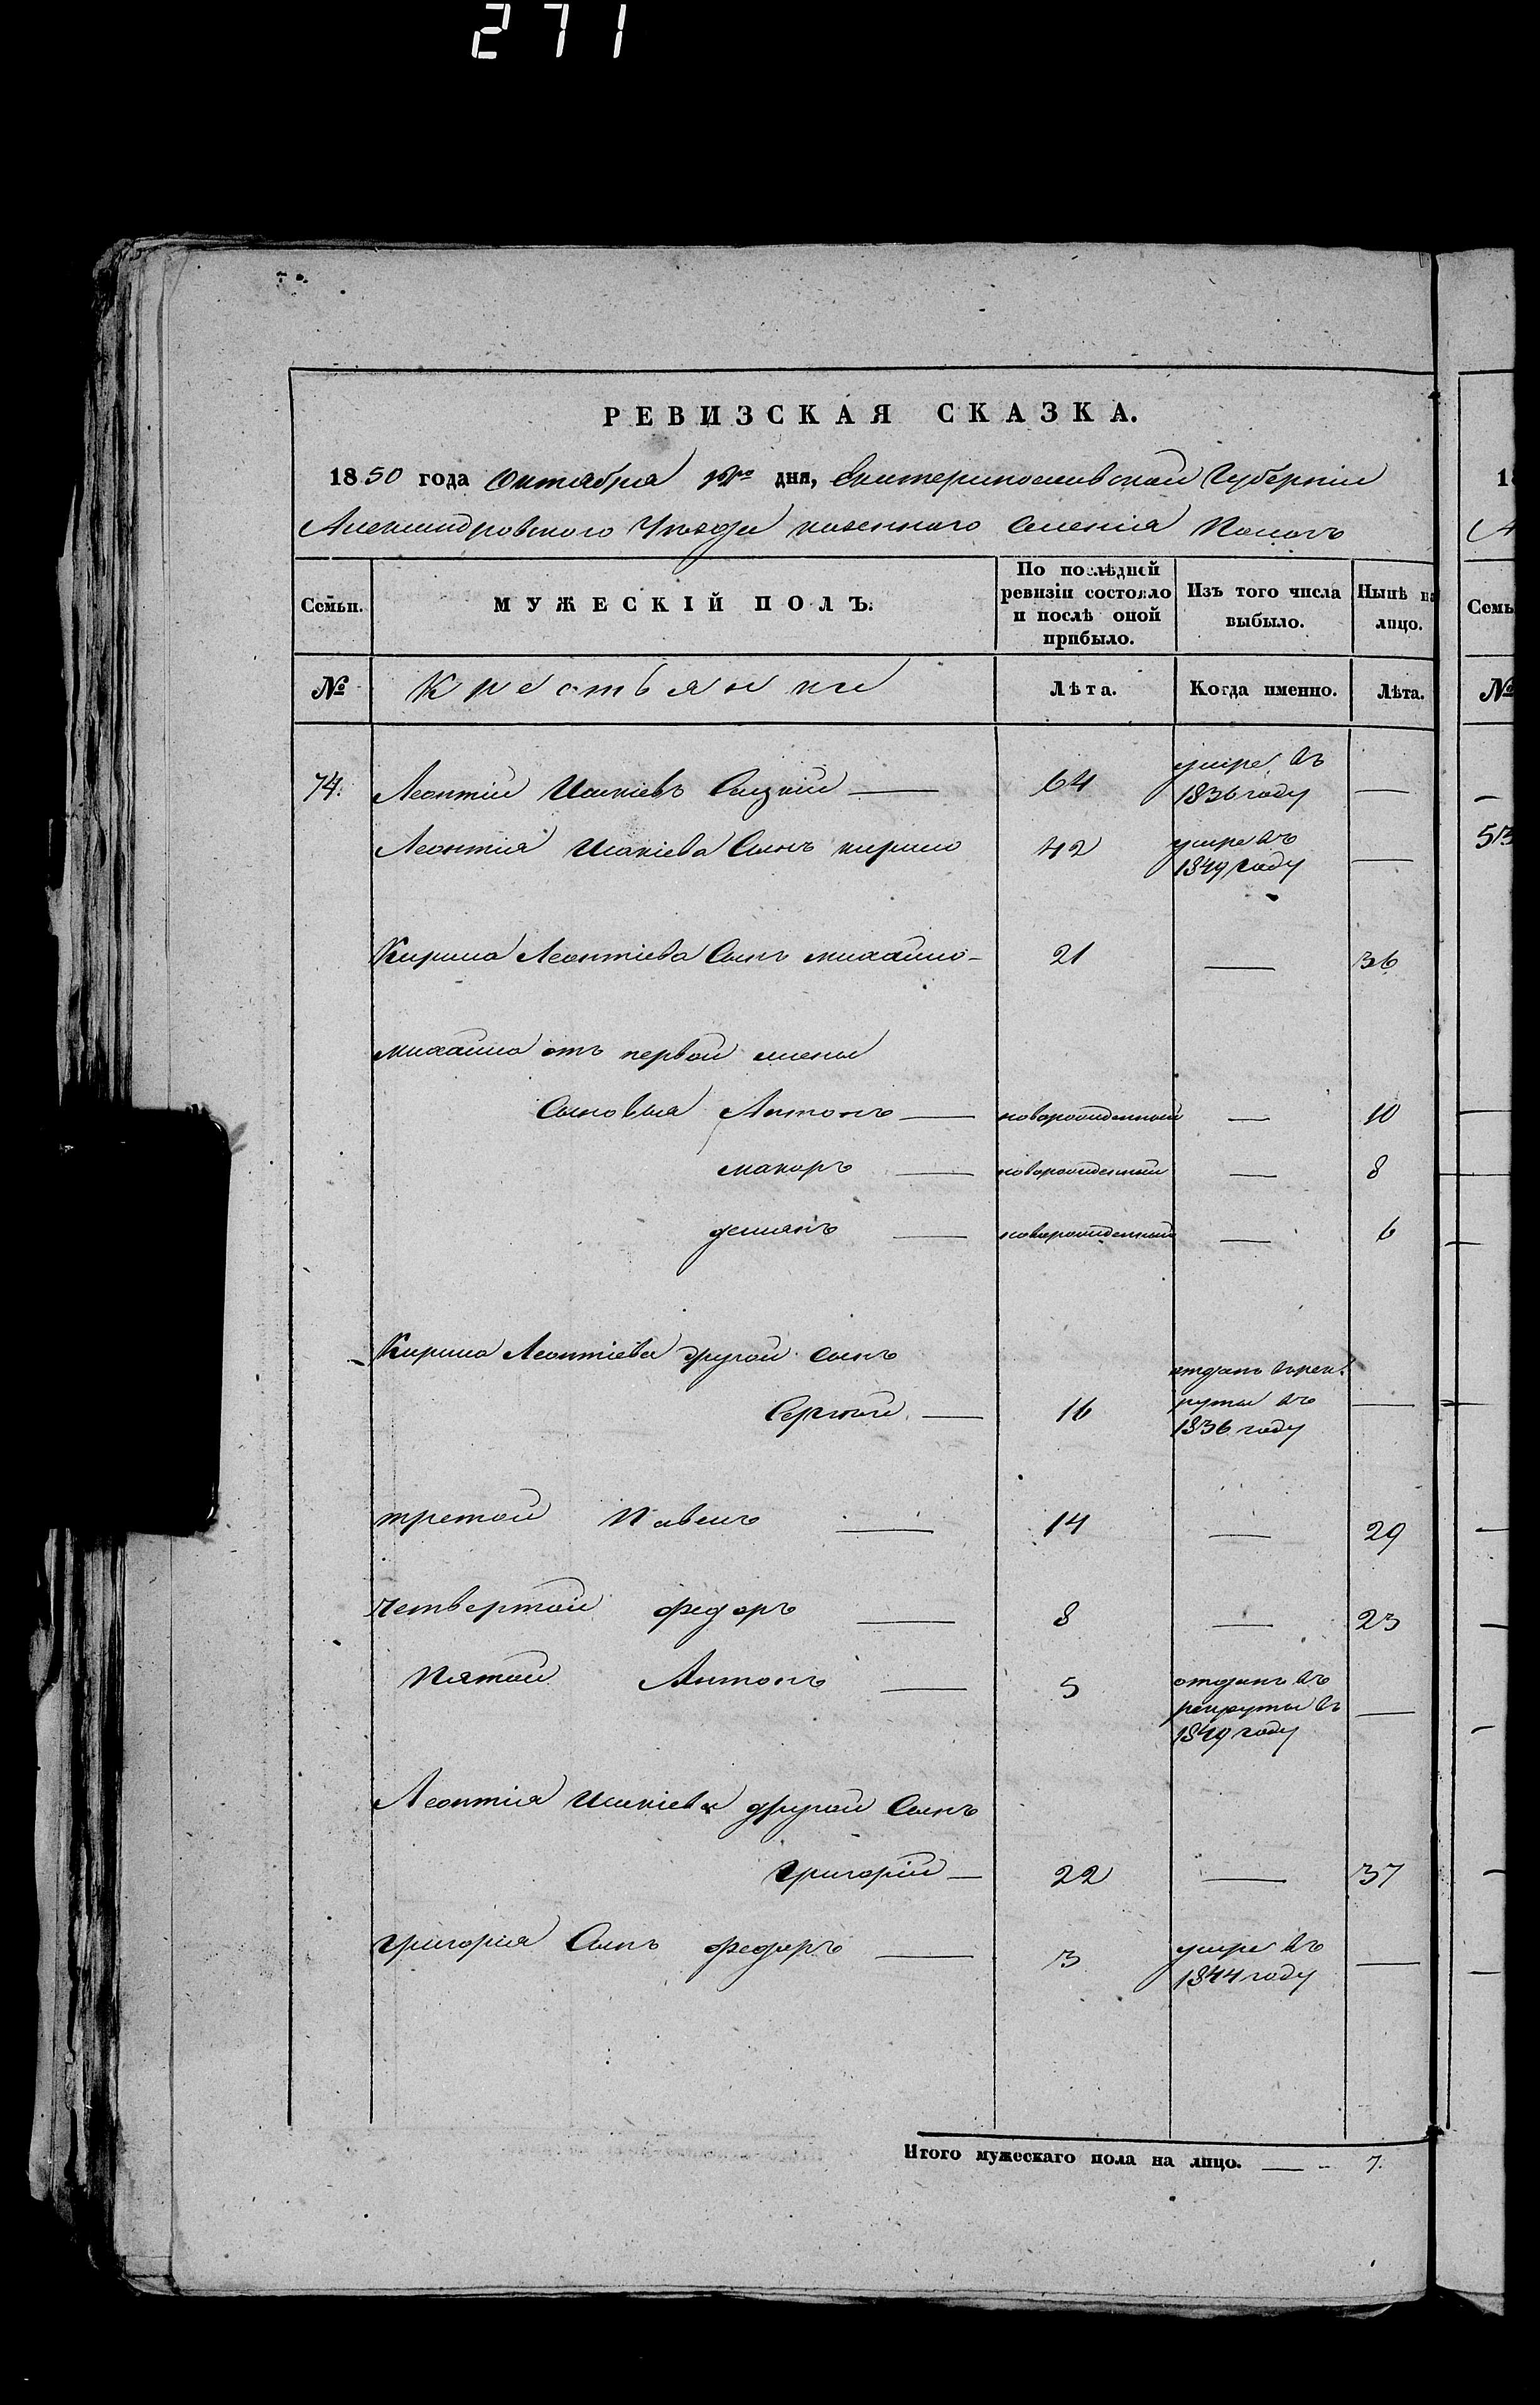 271
РЕВИЗСКАЯ СКАЗКА.
1850 года Октября дня, Екатеринославской Губерніи
Александровского Уѣзда казенного Селенія Пологъ
Семьи.
МУЖЕСКІЙ ПОЛЪ.
По послѣдней ревизіи состояло и послѣ оной прибыло.
Изъ того числа выбыло.
Нынѣ на лицо.
№ Крестьянки Лѣта. Когда именно. Лѣта.
74. Леонтій Исакіевъ 64 умре въ 1836 году —
Леонтія Исакіева Сынъ кирило 42 умре въ 1849 году —
Кирила Леонтіева Сынъ михайло 21 — 36
михайла отъ первой жены
Сыновья Антонъ — новорожденный — 10
макаръ — новорожденный — 8
демянъ — новорожденный — 6
Кирила Леонтіева другой сынъ
Сергѣй — 16 отданъ врек-
руты въ
1836 году —
третой Павелъ — 14 — 29
четвертой федоръ — 8 — 23
Пятой Антонъ — 5 отданъ въ
рекруты въ
1849 году —
Леонтія Исакіева другой Сынъ
григорій — 22 — 37
григорія Сынъ федоръ — 3 умре въ
1844 году —
Итого мужескаго пола на лицо. — - 7.